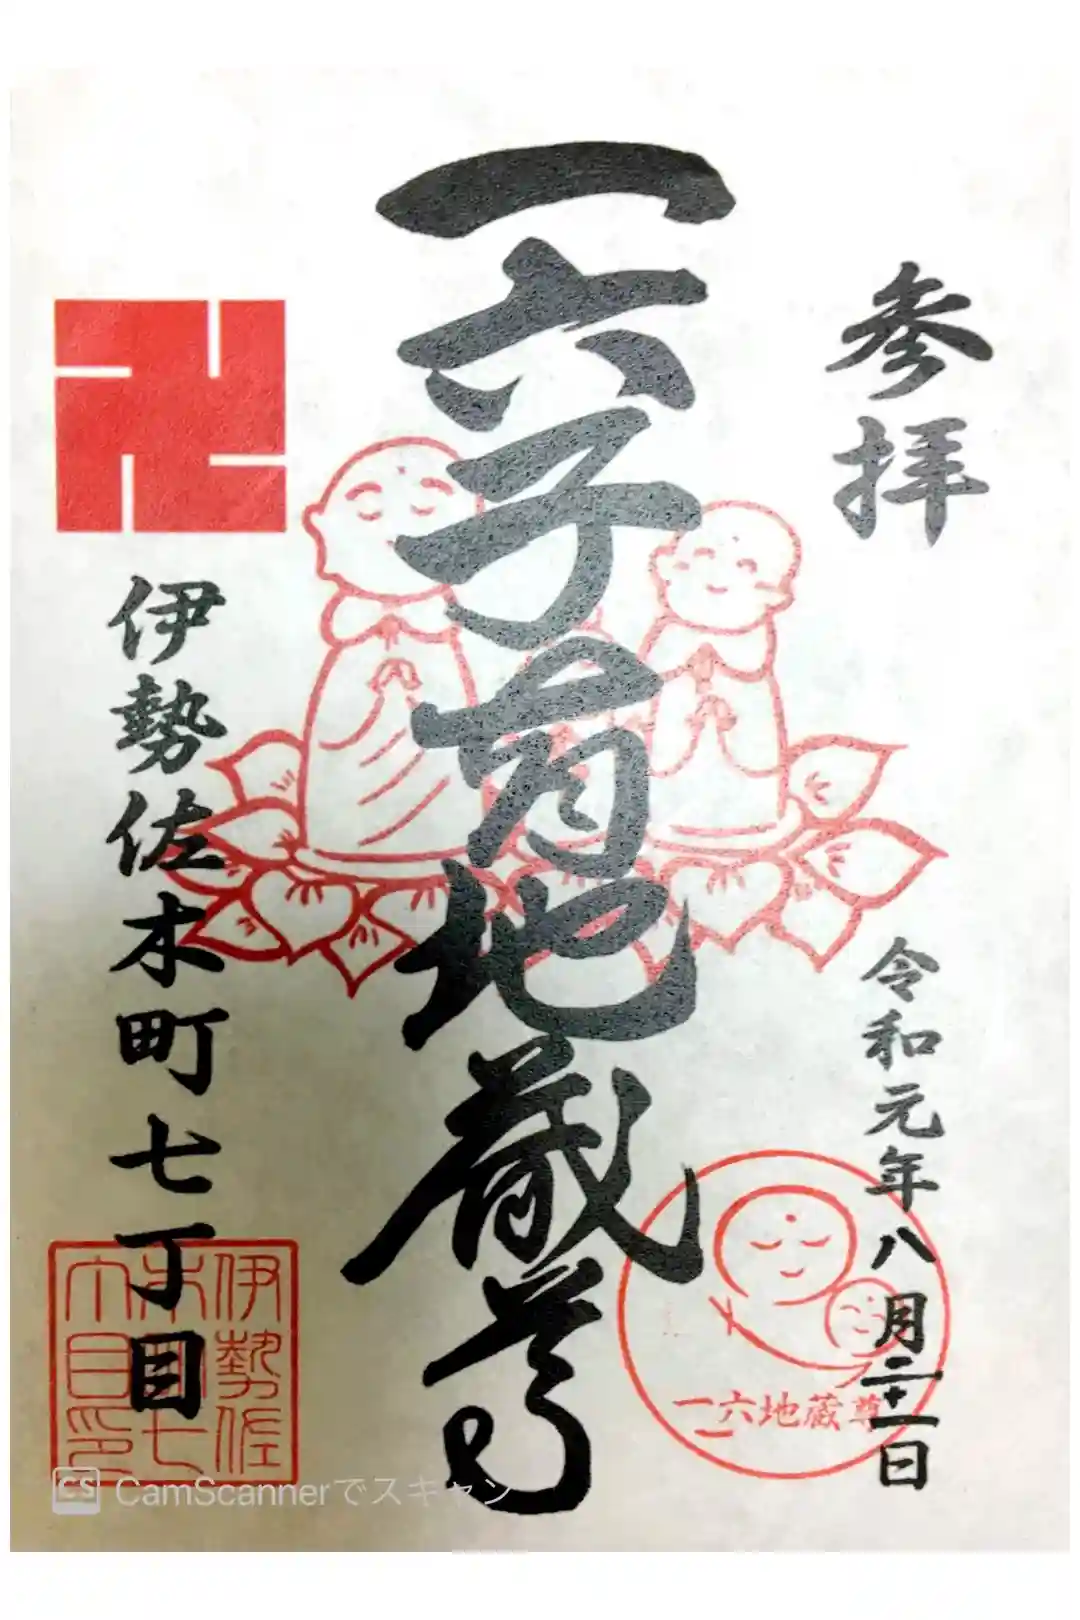 参拝
令和元年八月二十一日
一六子育地蔵尊
卍
伊勢佐木町七丁目
一六地蔵尊
伊勢佐
木町七
丁目印
CS CamScannerでスキャン